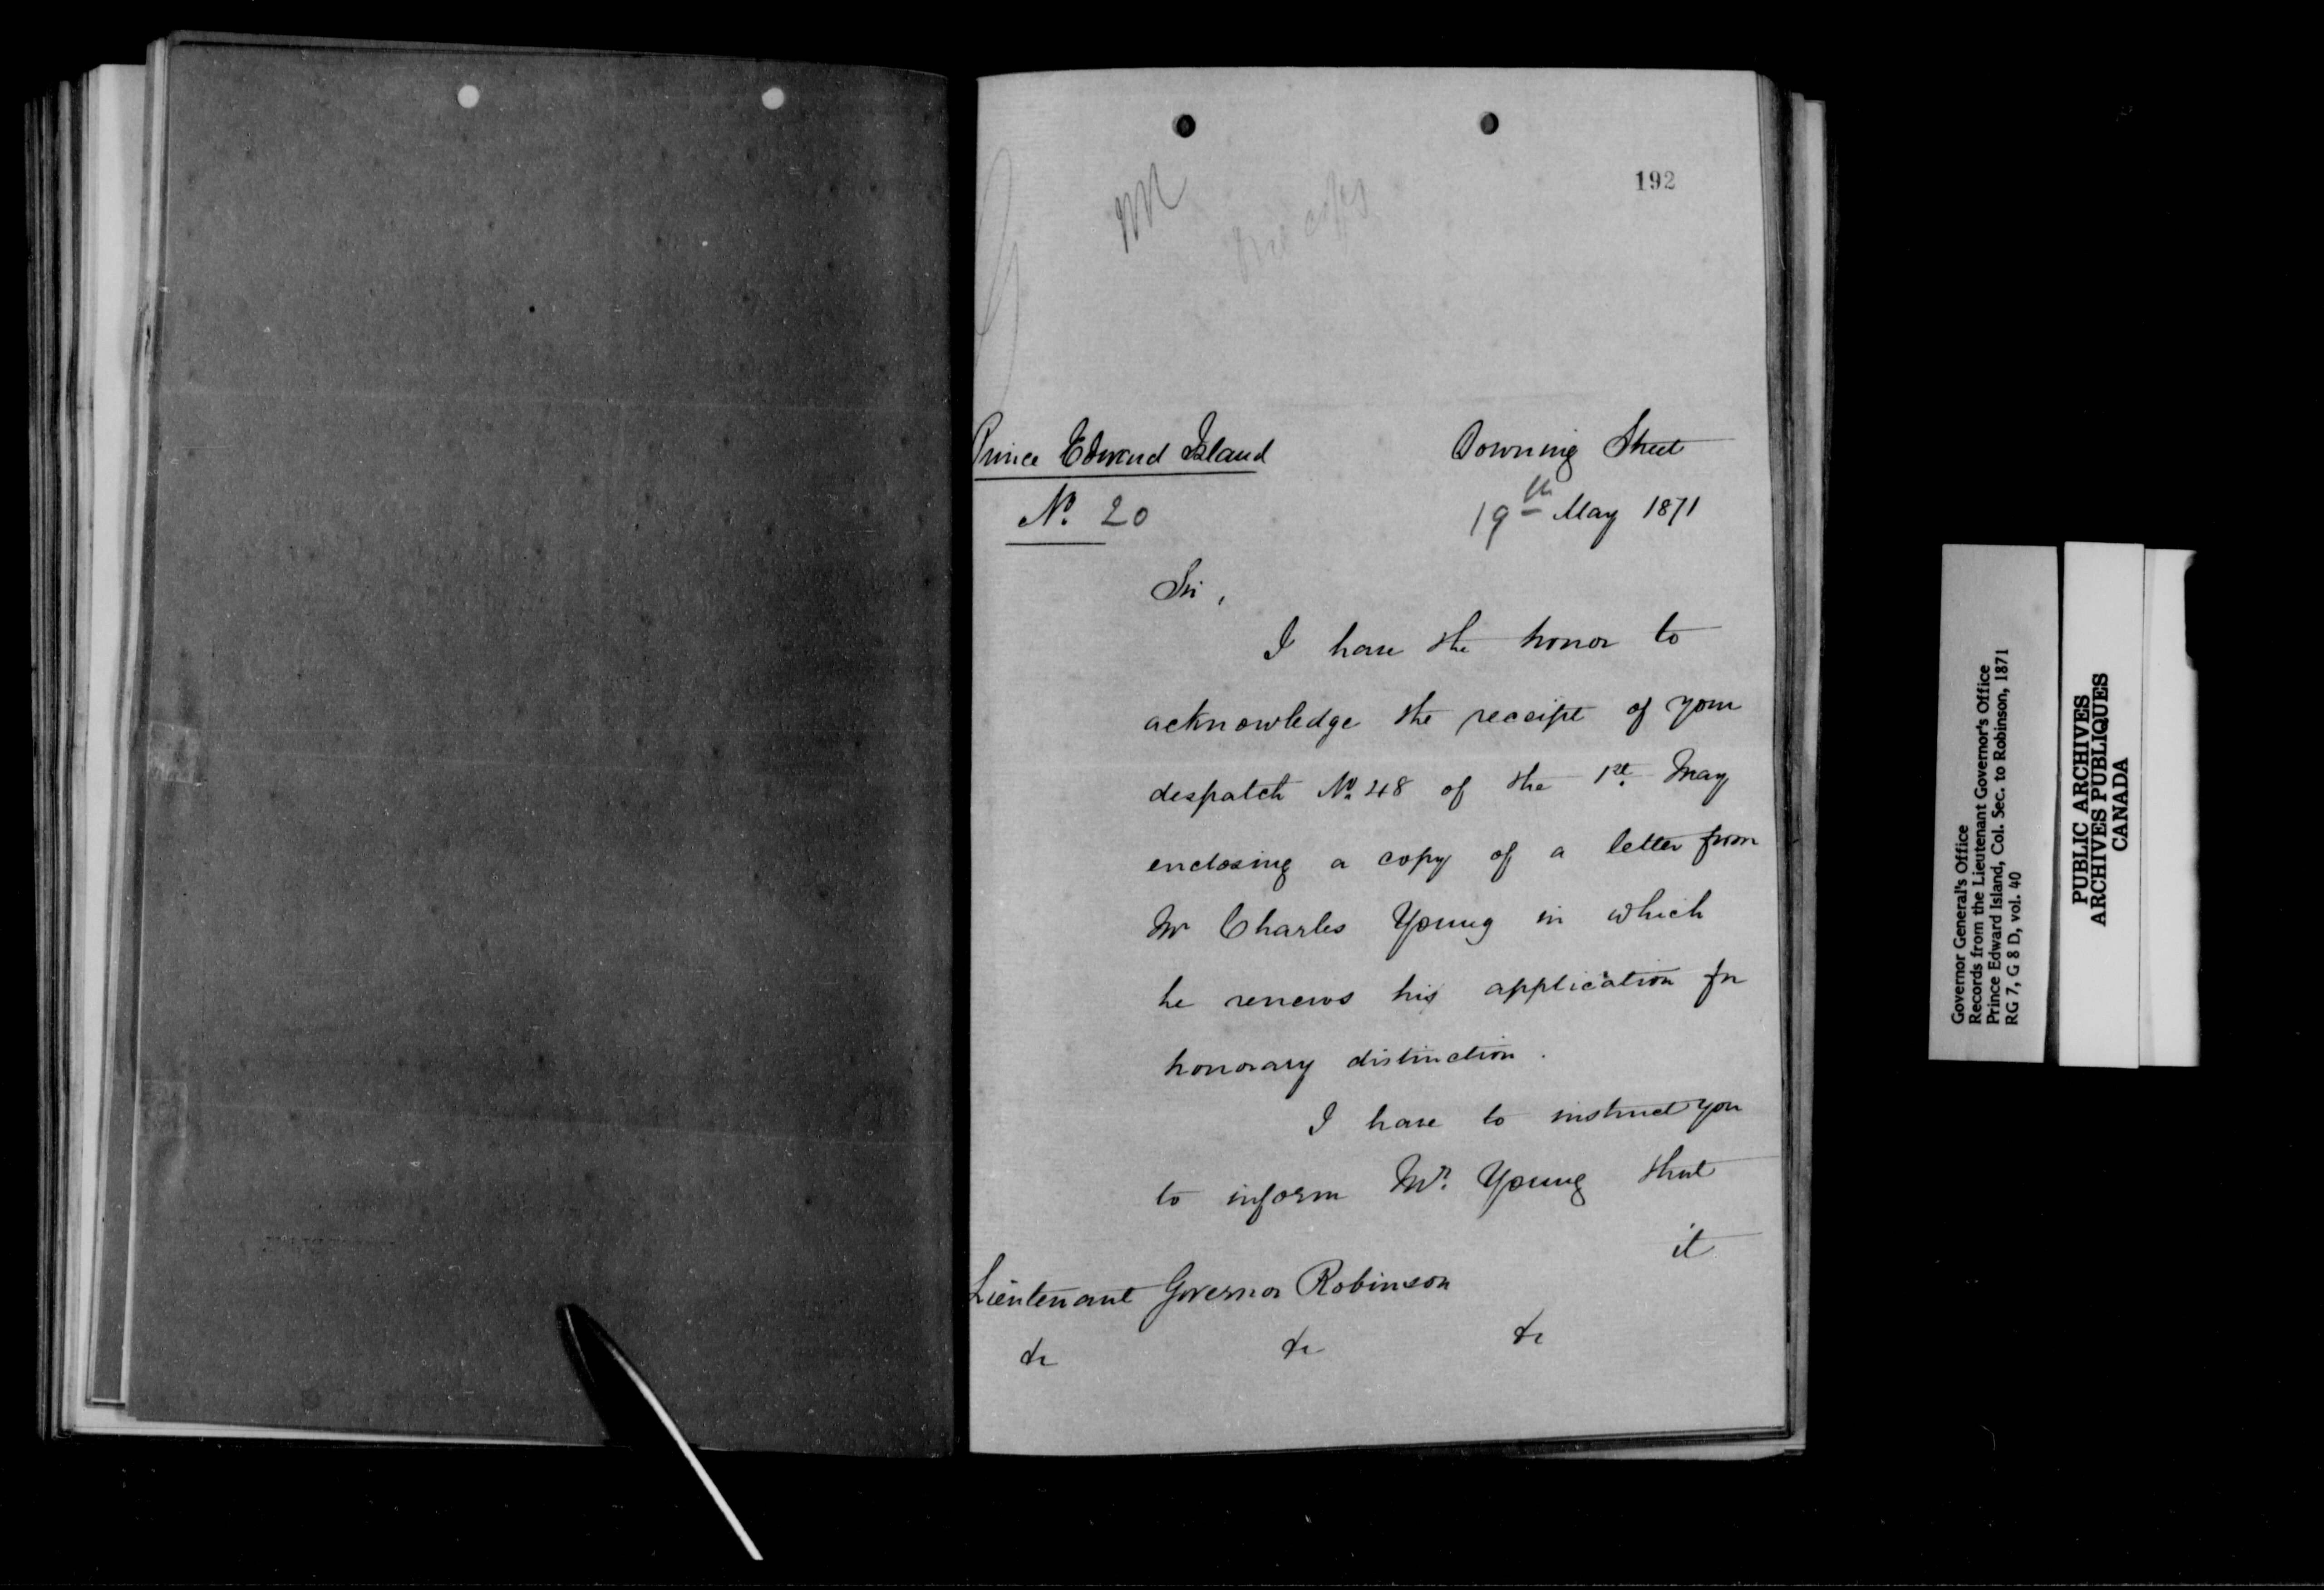 192
Prince Edward Island
Downing Street
Nº 20
19th May 1871
Sir,
I have the honor to
acknowledge the receipt of your
despatch Nº 48 of the 1st May
enclosing a copy of a letter from
Mr Charles Young in which
he renews his application for
honorary distinction.
I have to instruct you
to inform Mr. Young that
it
Lieutenant Governor Robinson
&c &c &c
Governor General's Office
Records from the Lieutenant Governor's Office
Prince Edward Island, Col. Sec. to Robinson, 1871
RG 7, G 8 D, vol. 40
PUBLIC ARCHIVES
ARCHIVES PUBLIQUES
CANADA